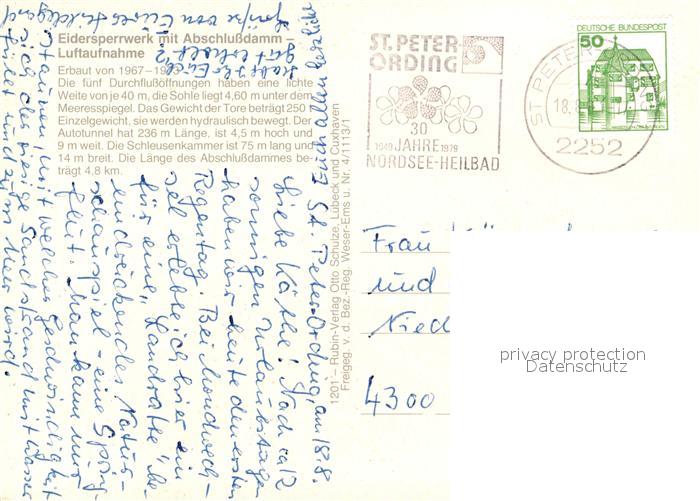 Eidersperrwerk mit Abschlußdamm –
Luftaufnahme
Erbaut von 1967–
Die fünf Durchflußöffnungen haben eine lichte
Weite von je 40 m, die Sohle liegt 4,60 m unter dem
Meeresspiegel. Das Gewicht der Tore beträgt 250
Einzelgewicht, sie werden hydraulisch bewegt. Der
Autotunnel hat 236 m Länge, ist 4,5 m hoch und
9 m weit. Die Schleusenkammer ist 75 m lang und
14 m breit. Die Länge des Abschlußdammes be-
trägt 4,8 km.
ST. PETER-
ORDING
30
1949 JAHRE 1979
NORDSEE-HEILBAD
ST. PETER
18.
2252
DEUTSCHE BUNDESPOST
50
1201 – Rubin-Verlag Otto Schulze, Lübeck und Cuxhaven
Freigeg. v. d. Bez.-Reg. Weser-Ems u. Nr. 4/1113/1
St. Peter-Ording, am 18.8.
Liebe Käthe! Nach ca 12
sonnigen Urlaubstagen
haben wir heute den ersten
Regentag. Bei Mondwech-
sel erlebte ich hier ein
für eine "Landratte" be-
eindruckendes Natur-
schauspiel - eine Spring-
flut. Man kann nur
staunen, mit welcher Geschwindigkeit
sich der riesige Sandstrand mit Wasser
füllt und zum Meer wird!
Frau
und
Nied
4300
privacy protection
Datenschutz